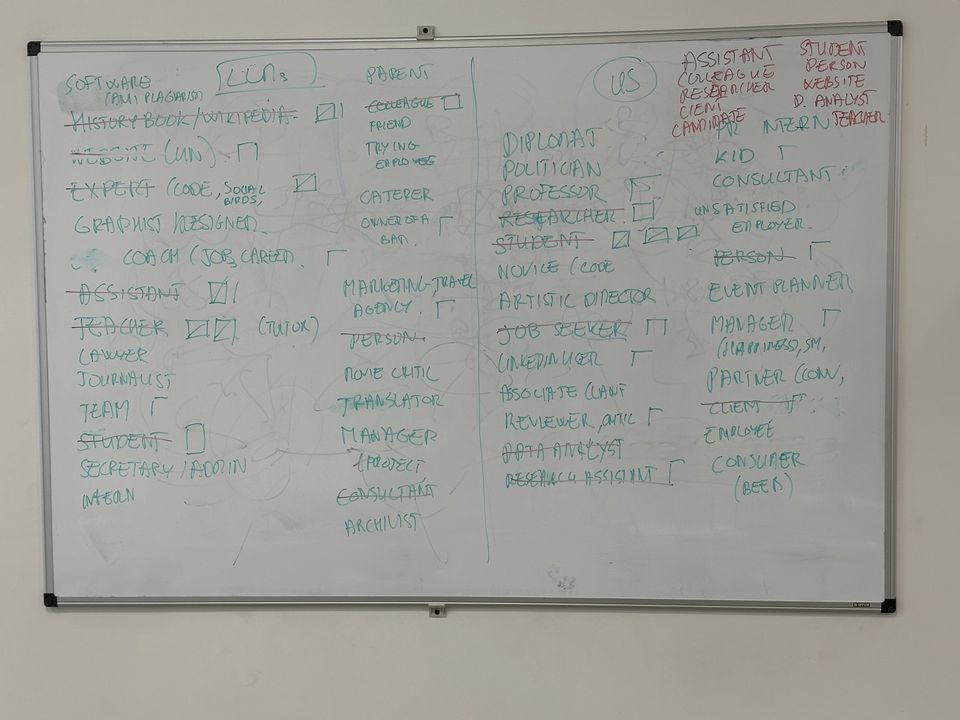 SOFTWARE
(ANTI PLAGIARIST)
HISTORY BOOK/WIKIPEDIA
(UN)
EXPERT (CODE, SOCIAL
BIRDS,
GRAPHIST/DESIGNER
COACH (JOB, CAREER
ASSISTANT
TEACHER (TUTOR)
LAWYER
JOURNALIST
TEAM
STUDENT
SECRETARY/ADMIN
INTERN
LLMs
PARENT
COLLEAGUE
FRIEND
TRYING
EMPLOYEE
CATERER
OWNER OF A
BAR
MARKETING-TRAVEL
AGENCY.
PERSON
MOVIE CRITIC
TRANSLATOR
MANAGER
(PROJECT
CONSULTANT
ARCHIVIST
US
DIPLOMAT
POLITICIAN
PROFESSOR
RESEARCHER
STUDENT
NOVICE (CODE
ARTISTIC DIRECTOR
JOB SEEKER
LINKEDIN USER
ASSOCIATE (LAW
REVIEWER, CRITIC
DATA ANALYST
RESEARCH ASSISTANT
ASSISTANT
COLLEAGUE
RESEARCHER
CLIENT
CANDIDATE
STUDENT
PERSON
WEBSITE
D. ANALYST
TEACHER
HR INTERN
KID
CONSULTANT
UNSATISFIED
EMPLOYER
PERSON
EVENT PLANNER
MANAGER
(HAPPINESS), SM,
PARTNER (CONV,
CLIENT
EMPLOYEE
CONSUMER
(BEER)